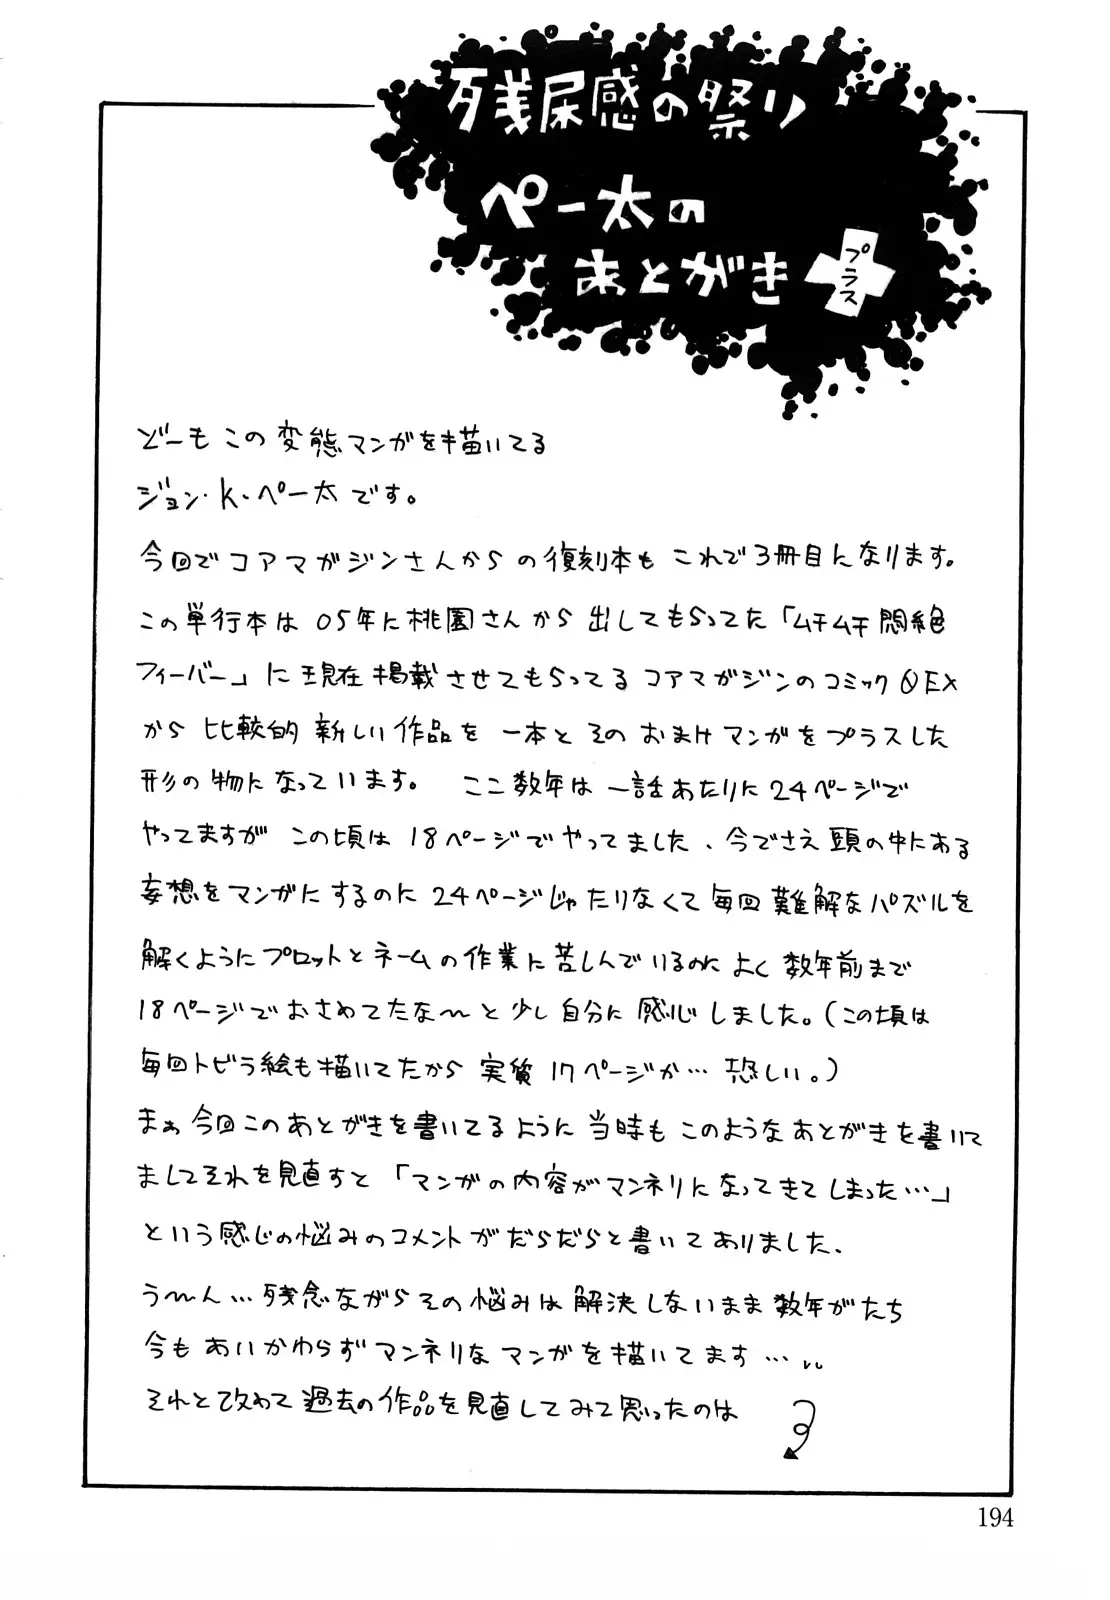 残尿感の祭り
ペー太の
あとがき
プラス
どーもこの変態マンガを描いてる
ジョン・K・ペー太です。
今回でコアマガジンさんからの復刻本もこれで3冊目になります。
この単行本は05年に桃園さんから出してもらってた「ムチムチ悶絶
フィーバー」に現在掲載させてもらってるコアマガジンのコミックOEX
から比較的新しい作品を一本とそのおまけマンガをプラスした
形の物になっています。 ここ数年は一話あたりに24ページで
やってますがこの頃は18ページでやってました、今でさえ頭の中にある
妄想をマンガにするのに24ページじゃたりなくて毎回難解なパズルを
解くようにプロットとネームの作業に苦しんでいるのによく数年前まで
18ページでおさめてたな〜と少し自分に感心しました。(この頃は
毎回トビラ絵も描いてたから実質17ページか…恐しい。)
まぁ今回このあとがきを書いてるように当時もこのようなあとがきを書いて
ましてそれを見直すと「マンガの内容がマンネリになってきてしまった…」
という感じの悩みのコメントがだらだらと書いてありました、
う〜ん…残念ながらその悩みは解決しないまま数年がたち
今もあいかわらずマンネリなマンガを描いてます…
それと改めて過去の作品を見直してみて思ったのは
194